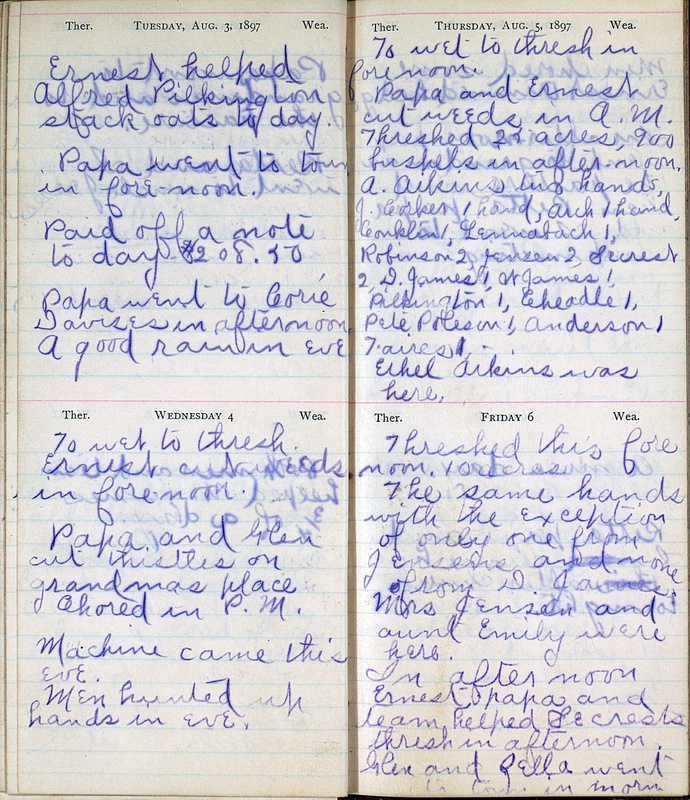 Ther. TUESDAY, AUG. 3, 1897 Wea.
Ernest helped
Alfred Pilkington
stack oats to day.
Papa went to town
in fore-noon.
Paid off a note
to day $208.50
Papa went to Corie
Davises in afternoon
A good rain in eve
Ther. WEDNESDAY 4 Wea.
To wet to thresh.
Ernest cut weeds
in forenoon.
Papa and Glen
cut thistles on
grandmas place
Chored in P.M.
Machine came this
eve.
Men hunted up
hands in eve.
Ther. THURSDAY, AUG. 5, 1897 Wea.
To wet to thresh in
forenoon.
Papa and Ernest
cut weeds in A.M.
Threshed acres, 900
bushels in after-noon.
A. Aikins hands,
J. Corker 1 hand, Arch 1 hand,
Conklin 1, Lennabach 1,
Robinson 2, Jensen 2, Secrest
2, D. James 1, W James 1,
Pilkington 1, Cheadle 1,
Pete Poleson 1, Anderson 1
1.
Ethel Aikins was
here.
Ther. FRIDAY 6 Wea.
Threshed this fore
noon. acres.
The same hands
with the exception
of only one from
Jensens and none
from D. James.
Mrs Jensen and
aunt Emily were
here.
In after noon
Ernest papa and
team helped Secrests
thresh in afternoon.
Glen and Zella went
to town in morn